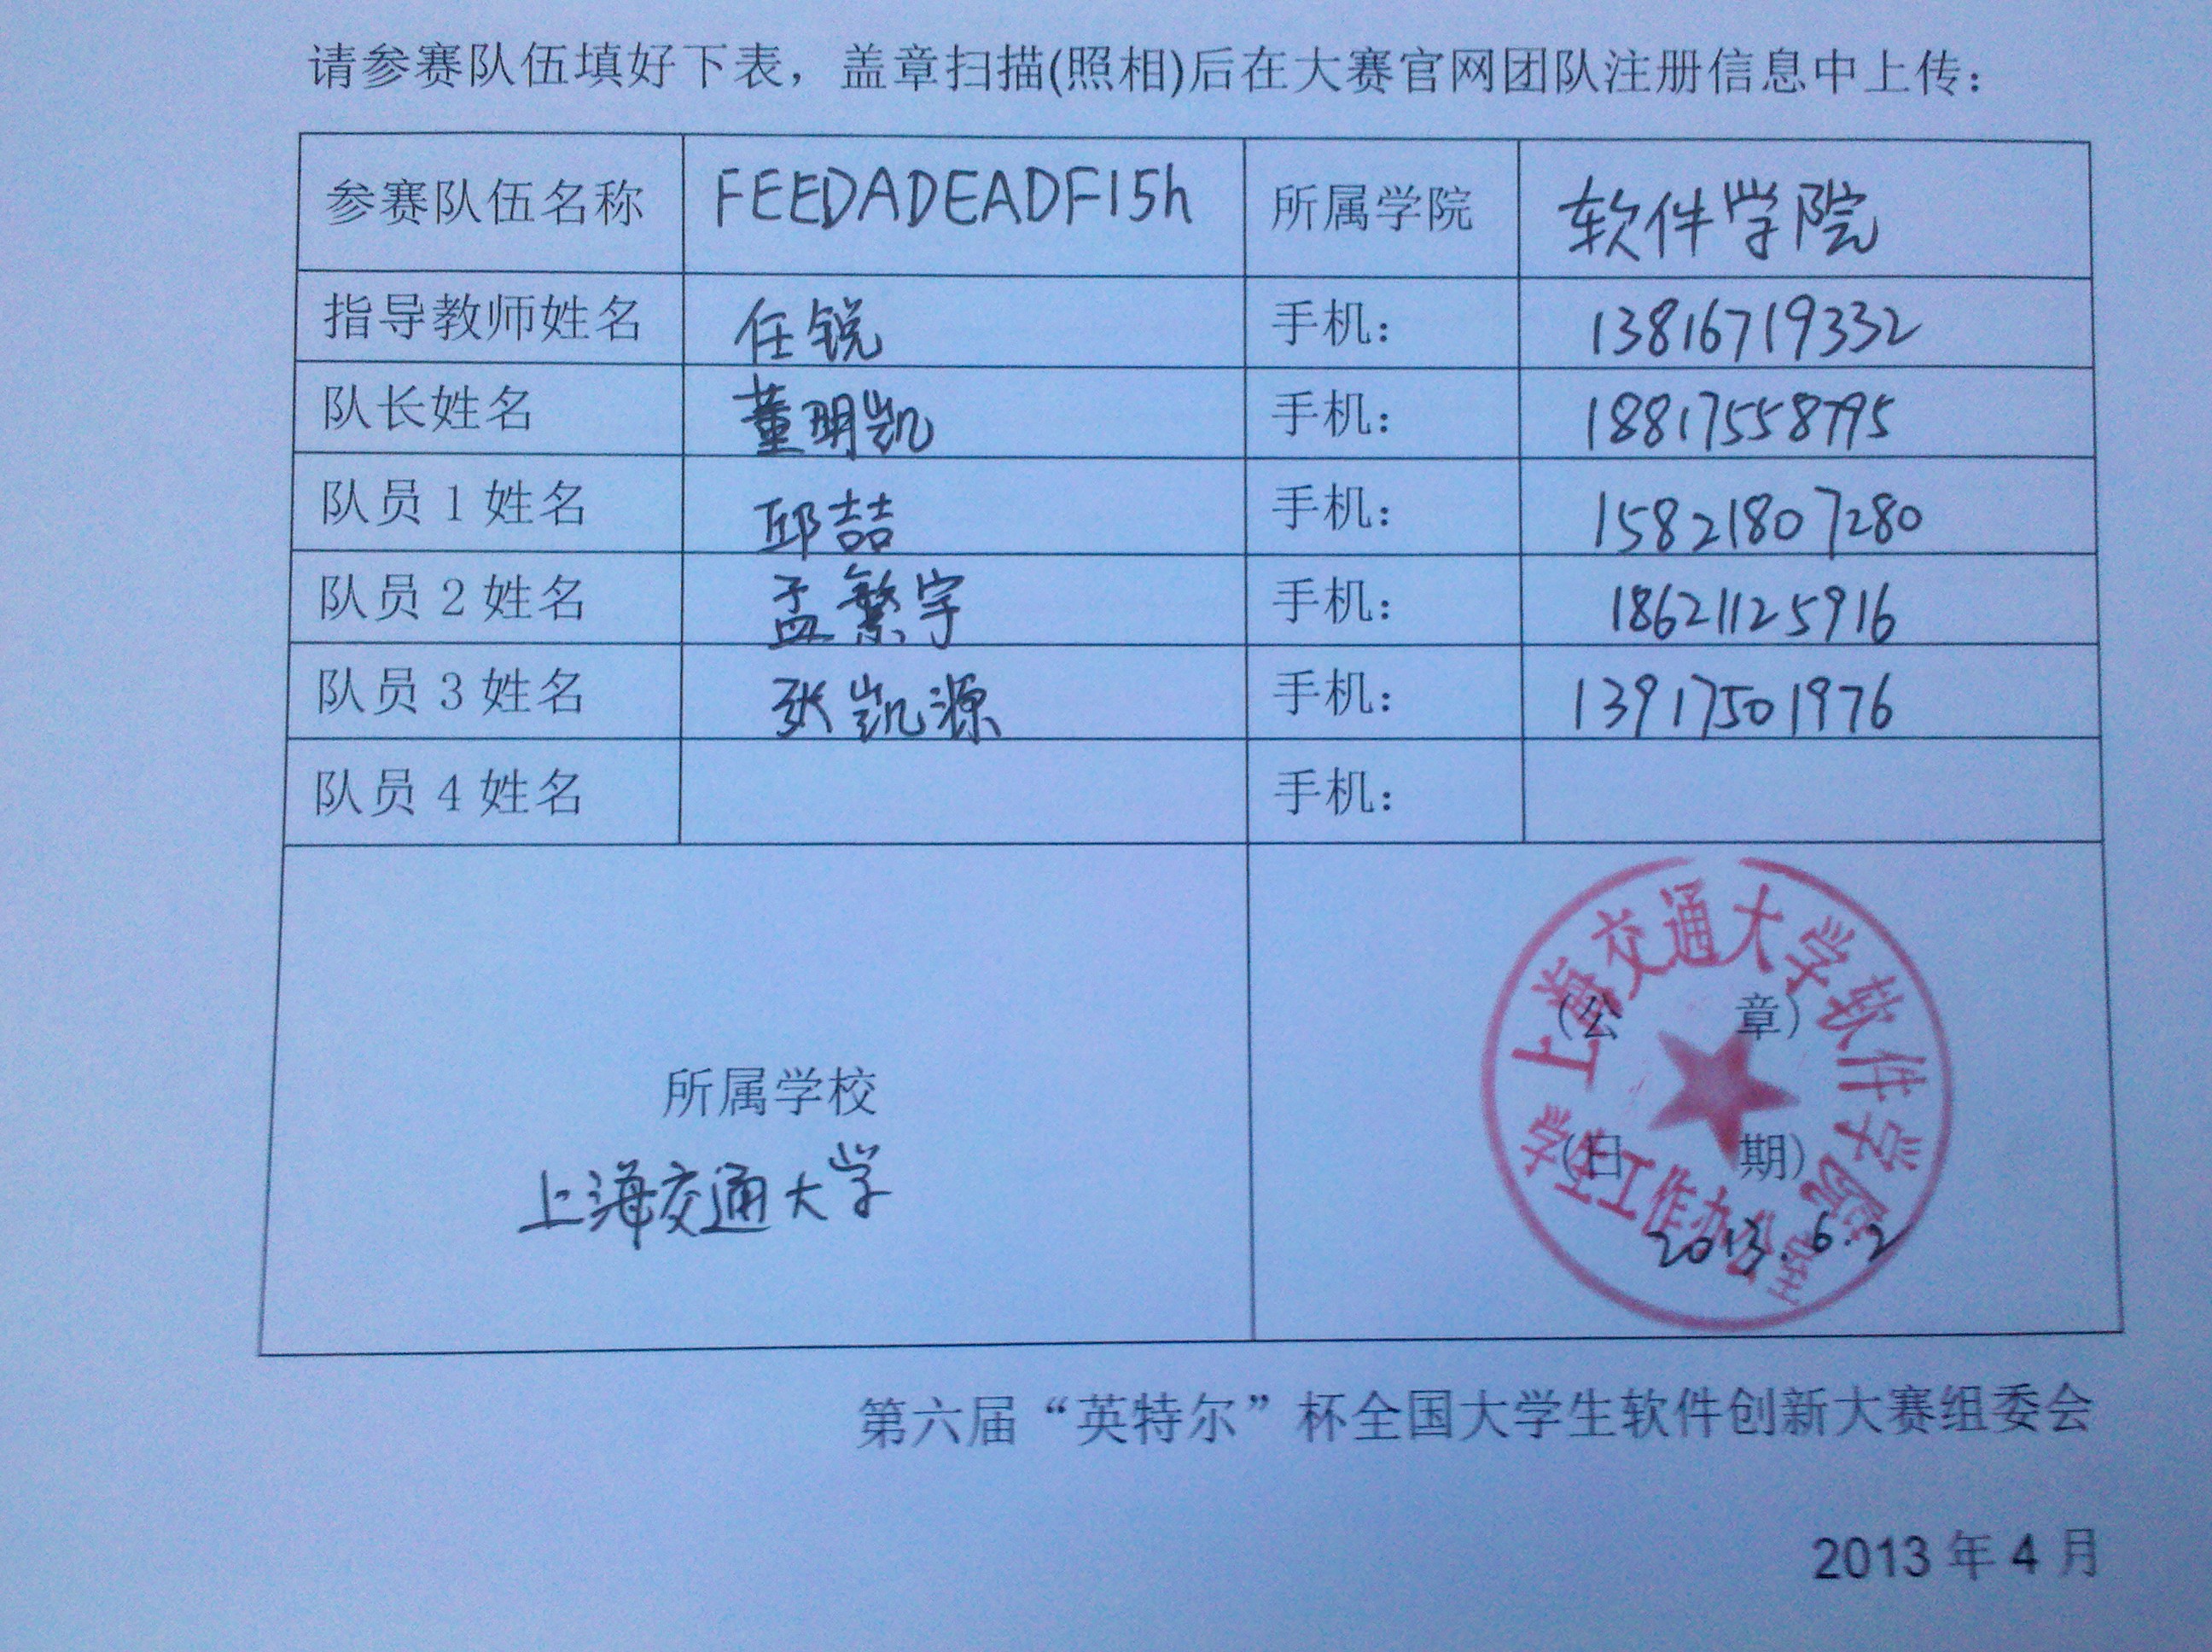 请参赛队伍填好下表，盖章扫描(照相)后在大赛官网团队注册信息中上传：
参赛队伍名称 FEEDADEADF15h 所属学院 软件学院
指导教师姓名 任锐 手机： 13816719332
队长姓名 董明凯 手机： 18817558795
队员 1 姓名 邱喆 手机： 15821807280
队员 2 姓名 孟繁宇 手机： 18621125916
队员 3 姓名 张凯源 手机： 13917501976
队员 4 姓名 手机：
所属学校
上海交通大学
上海交通大学软件学院
学生工作办公室
(公 章)
(日 期)
2013.6.2
第六届“英特尔”杯全国大学生软件创新大赛组委会
2013 年 4 月